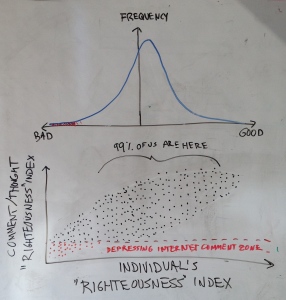 FREQUENCY
BAD
GOOD
99% OF US ARE HERE
COMMENT/THOUGHT
"RIGHTEOUSNESS" INDEX
DEPRESSING INTERNET COMMENT ZONE
INDIVIDUAL'S
"RIGHTEOUSNESS" INDEX